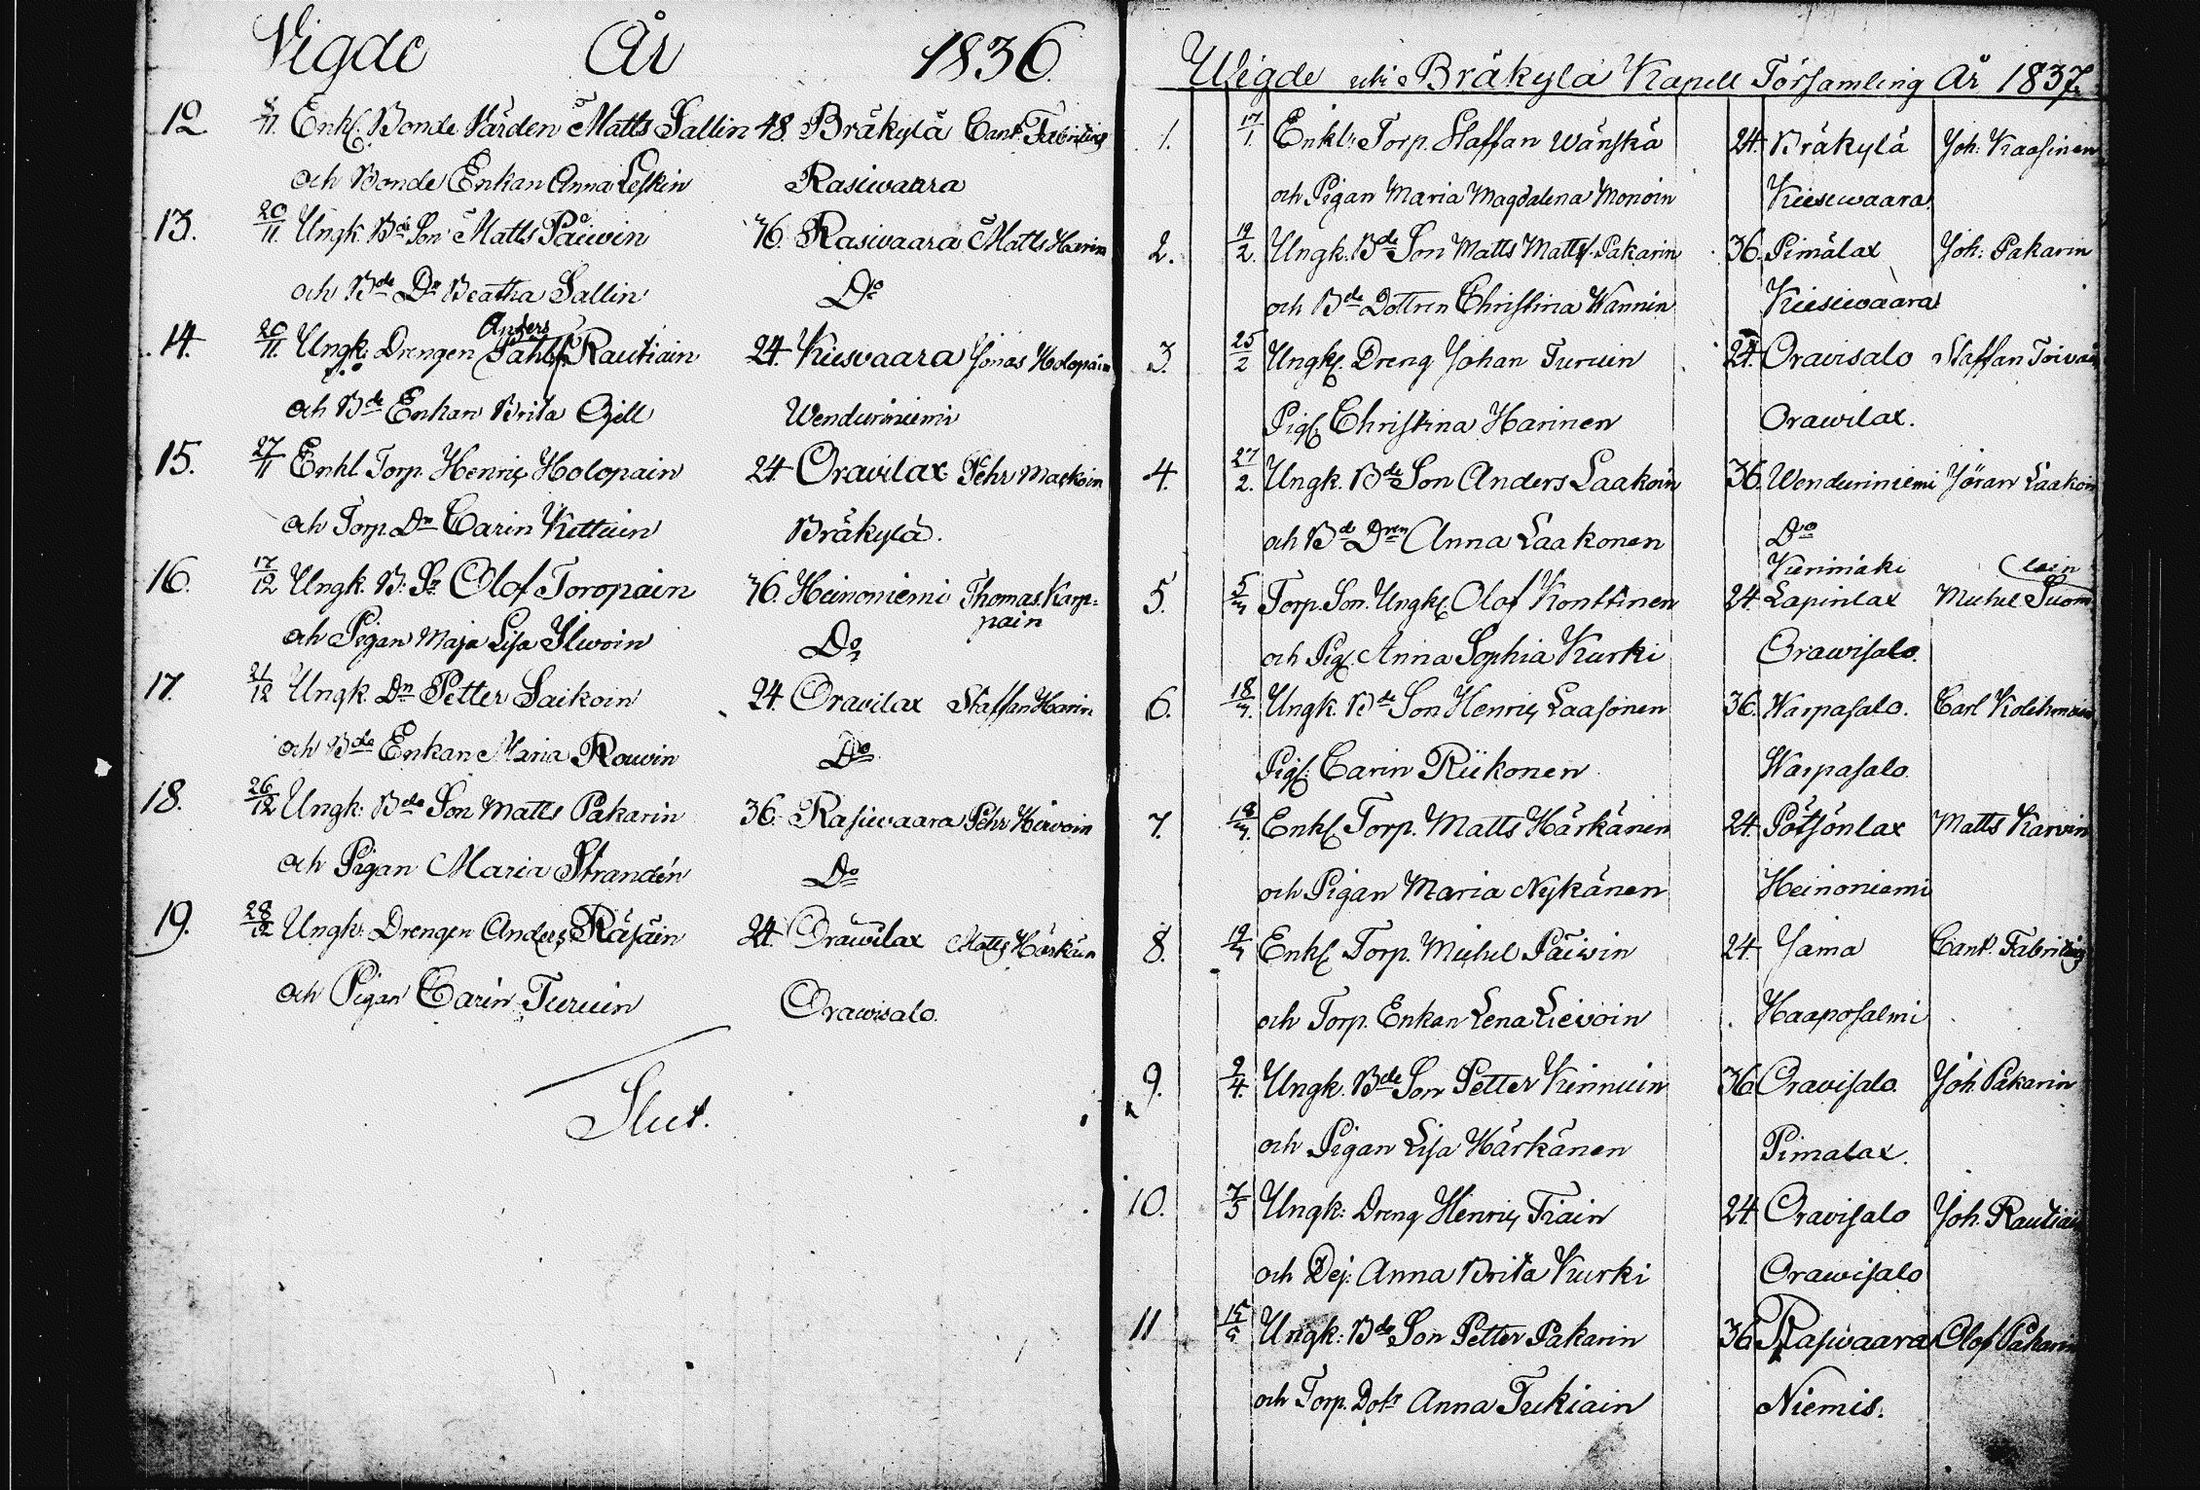 Vigde År 1836.
12 8/11. Enkl. Bonde Värden Matts Sallin 48. Bräkylä Cant. Fabritius
och Bonde Enkan Anna Leskin Rasiwaara
13. 20/11. Ungk. Bde Son Matts Päiwin 36. Rasiwaara Matts Harin
och Bde Dr Beatha Sallin Do
Anders
14. 20/11. Ungk. Drengen Rautiain 24. Kieswaara Jonas Holopain
och Bde Enkan Brita Gjell Wenduriniemi
15. 27/11 Enkl. Torp. Henric Holopain 24 Oravilax Pehr Mackoin
och Torp. Dn Carin Kettuin Bräkylä.
16. 17/12 Ungk. B. Sn Olof Toropain 36. Heinoniemi Thomas Karp=
pain
och Pigan Maja Lisa Ilwoin Do
17. 21/12 Ungk. Dn Petter Saikoin 24 Oravilax Staffan Harin
och Bde Enkan Maria Rouvin Do
18. 26/12 Ungk: Bde Son Matts Pakarin 36. Rasiwaara Pehr Hirvoin
och Pigan Maria Strandén Do
19. 28/12 Ungk: Drengen Anders Räsäin 24. Orawilax Matts Härkän
och Pigan Carin Turuin Orawisalo.
Slut.
Wigde uti Bräkylä Kapell Församling År 1837.
1. 17/1. Enkl: Torp. Staffan Wänskä 24. Bräkylä Joh: Kaasinen
och Pigan Maria Magdalena Monoin Kiesiwaara
2. 19/2. Ungk. Bde Son Matts Mattss. Pakarin 36. Pimälax Joh: Pakarin
och Bde Dottren Christina Wannin Kiesiwaara
3. 25/2 Ungk. Dreng Johan Turuin 24. Oravisalo Staffan Toivain
Pig. Christina Harinen Orawilax.
4. 27/2. Ungk. Bde Son Anders Laakoin 36. Wenduriniemi Jöran Laakoin
och Bd Dren Anna Laakonen Do
Kiminäki
5. 5/3 Torp. Son. Ungk. Olof Konttinen 24 Lapinlax Michel Suomalain
och Pig. Anna Sophia Kurki Orawisalo.
6. 18/3. Ungk. Bde Son Henric Laasonen 36. Warpasalo. Carl Kolehmain
Pig. Carin Riikonen Warpasalo.
7. 19/3. Enkl. Torp. Matts Härkänen 24. Pötsönlax Matts Karvin
och Pigan Maria Nykänen Heinoniemi
8. 19/3 Enkl. Torp. Michel Päiwin 24 Jama Cant. Fabritius
och Torp. Enkan Lena Lievoin Haaposalmi
9. 2/4. Ungk. Bde Son Petter Kinnuin 36 Oravisalo. Joh Pakarin
och Pigan Lisa Härkänen Pimalax.
10. 7/5 Ungk: Dreng Henric Tiain 24 Oravisalo Joh. Rautiain
och Dej: Anna Brita Kurki Orawisalo
11 15/5 Ungk: Bde Son Petter Pakarin 36 Rasiwaara Olof Pakarin
och Torp. Dotr Anna Tukiain Niemis.